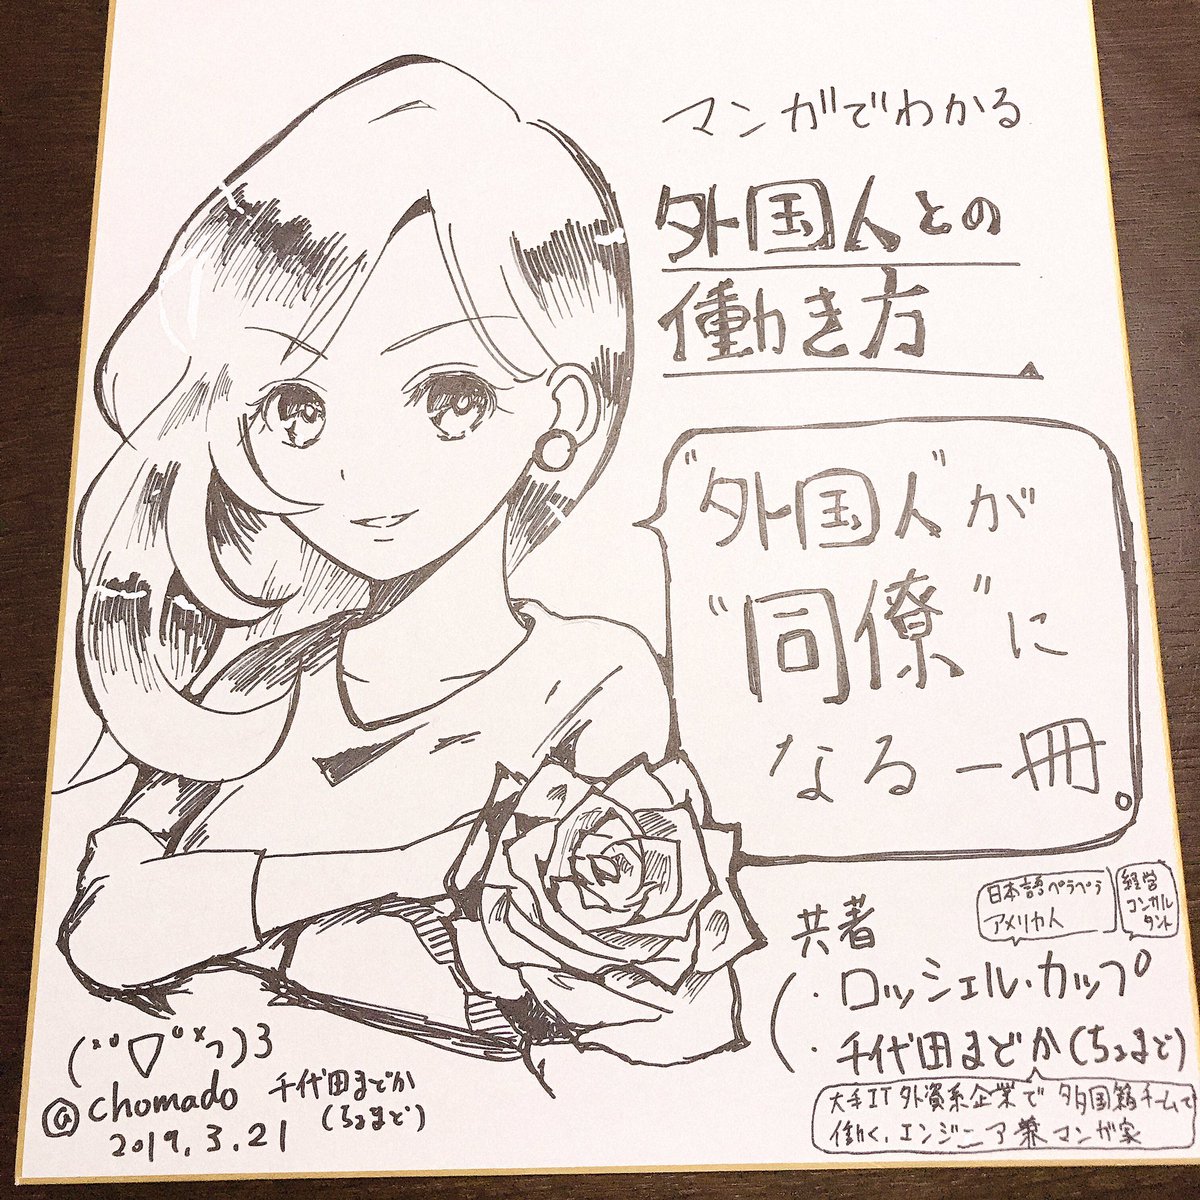 マンガでわかる
外国人との
働き方
"外国人"が
"同僚"に
なる一冊。
共著
日本語ペラペラ
アメリカ人
経営
コンサル
タント
・ロッシェル・カップ
・千代田まどか(ちょまど)
大手IT外資系企業で多国籍チームで
働く、エンジニア兼マンガ家
(*゚▽゚*っ)3
@chomado
千代田まどか
(ちょまど)
2019.3.21